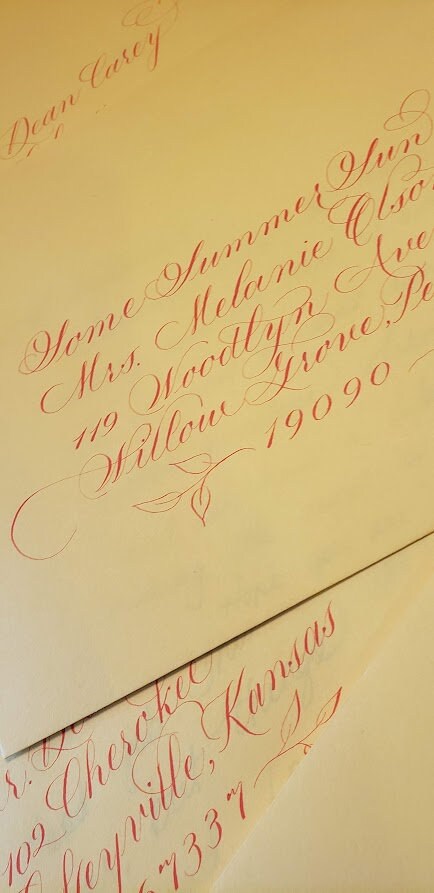 Dean Carey
Some Summer Sun
Mrs. Melanie Olso
119 Woodlyn Ave
Willow Grove, Pe
19090
r.
102 Cherokee
ffeyville, Kansas
67337